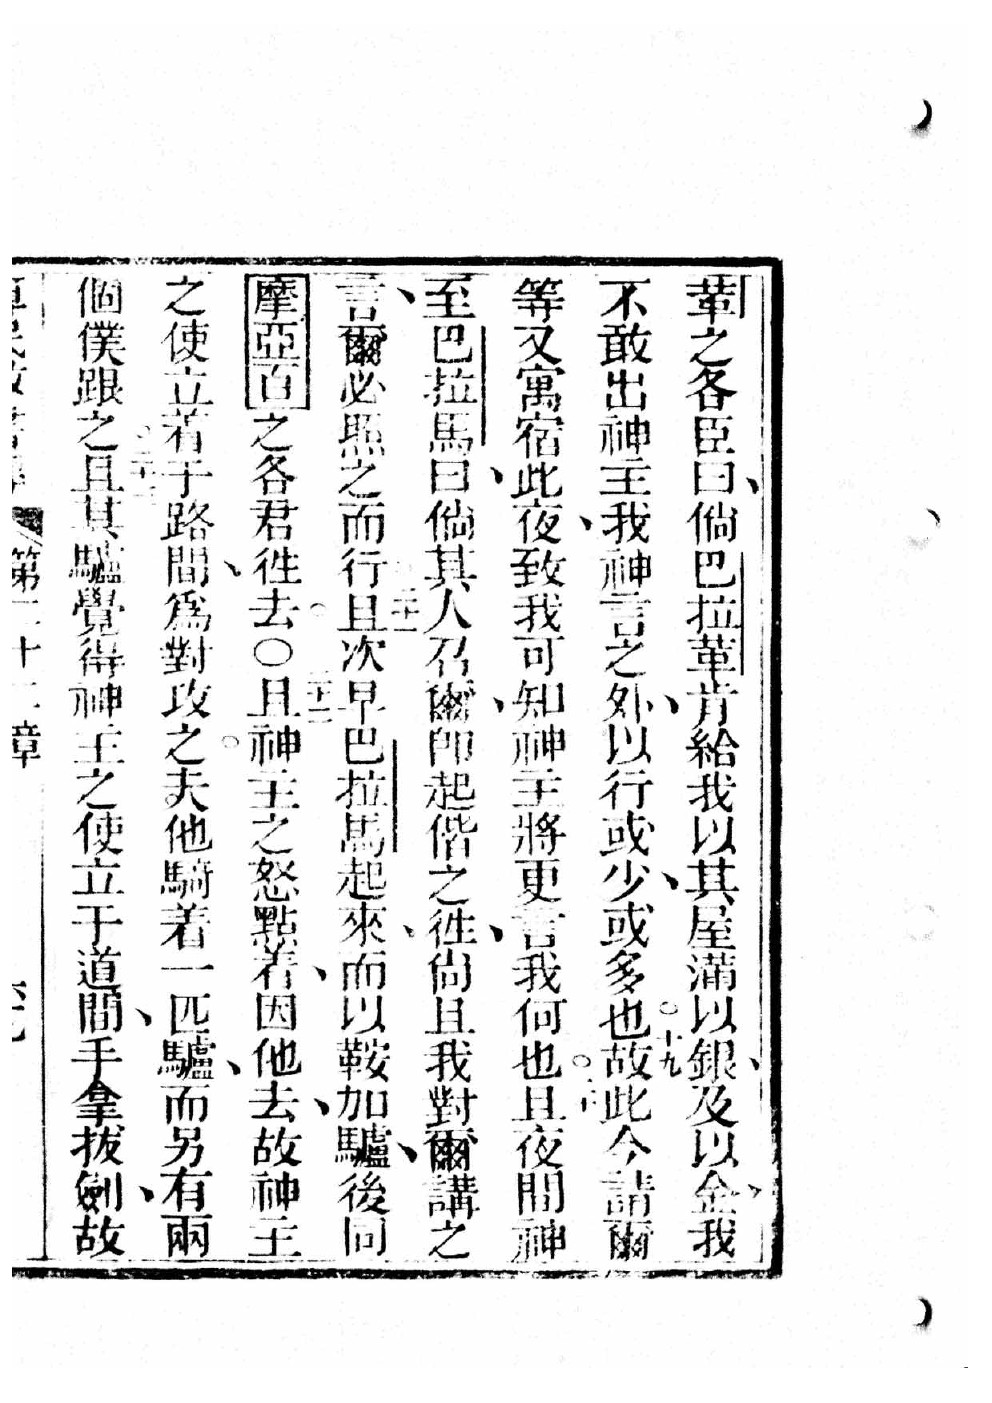 輋之各臣曰、倘巴拉革肯給我以其屋滿以銀、及以金、我
不敢出神主我神言之外、以行或少、或多也。十九故此今請爾
等又寓宿此夜、致我可知神主將更言我何也。二十且夜間神
至巴拉馬曰、倘其人召爾、即起偕之徃、尙且我對爾講之
言、爾必照之而行。二十一且次早巴拉馬起來、而以鞍加驢、後同
摩亞百之各君徃去。〇二十二且神主之怒點着、因他去、故神主
之使立着于路間、爲對攻之。夫他騎着一匹驢、而另有兩
個僕跟之。二十三且其驢覺得神主之使立于道間、手拿拔劍、故
第二十二章